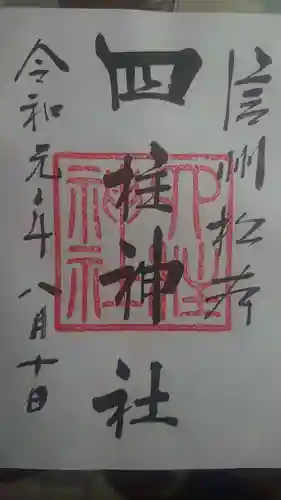 信州松本
四柱神社
令和元年八月十日
四柱神社